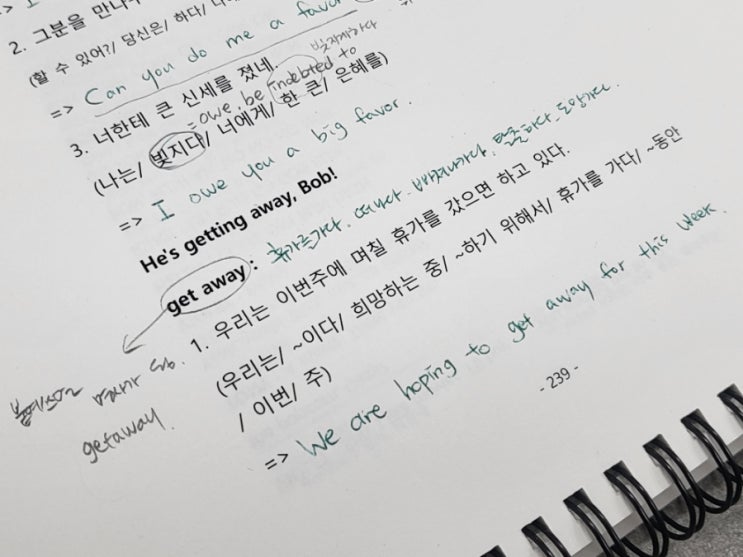 2. 그분을 만나
(할 수 있어?/ 당신은/ 하다/
=> Can you do me a favor
3. 너한테 큰 신세를 졌네.
= owe, be indebted to 빚지게하다
(나는/ 빚지다/ 너에게/ 한 큰/ 은혜를)
=> I owe you a big favor.
He's getting away, Bob!
get away : 휴가를가다. 떠나다. 빠져나가다, 탈출하다, 도망가다.
1. 우리는 이번주에 며칠 휴가를 갔으면 하고 있다.
(우리는/ ~이다/ 희망하는 중/ ~하기 위해서/ 휴가를 가다/ ~동안
/ 이번/ 주)
=> We are hoping to get away for this week.
getaway.
- 239 -